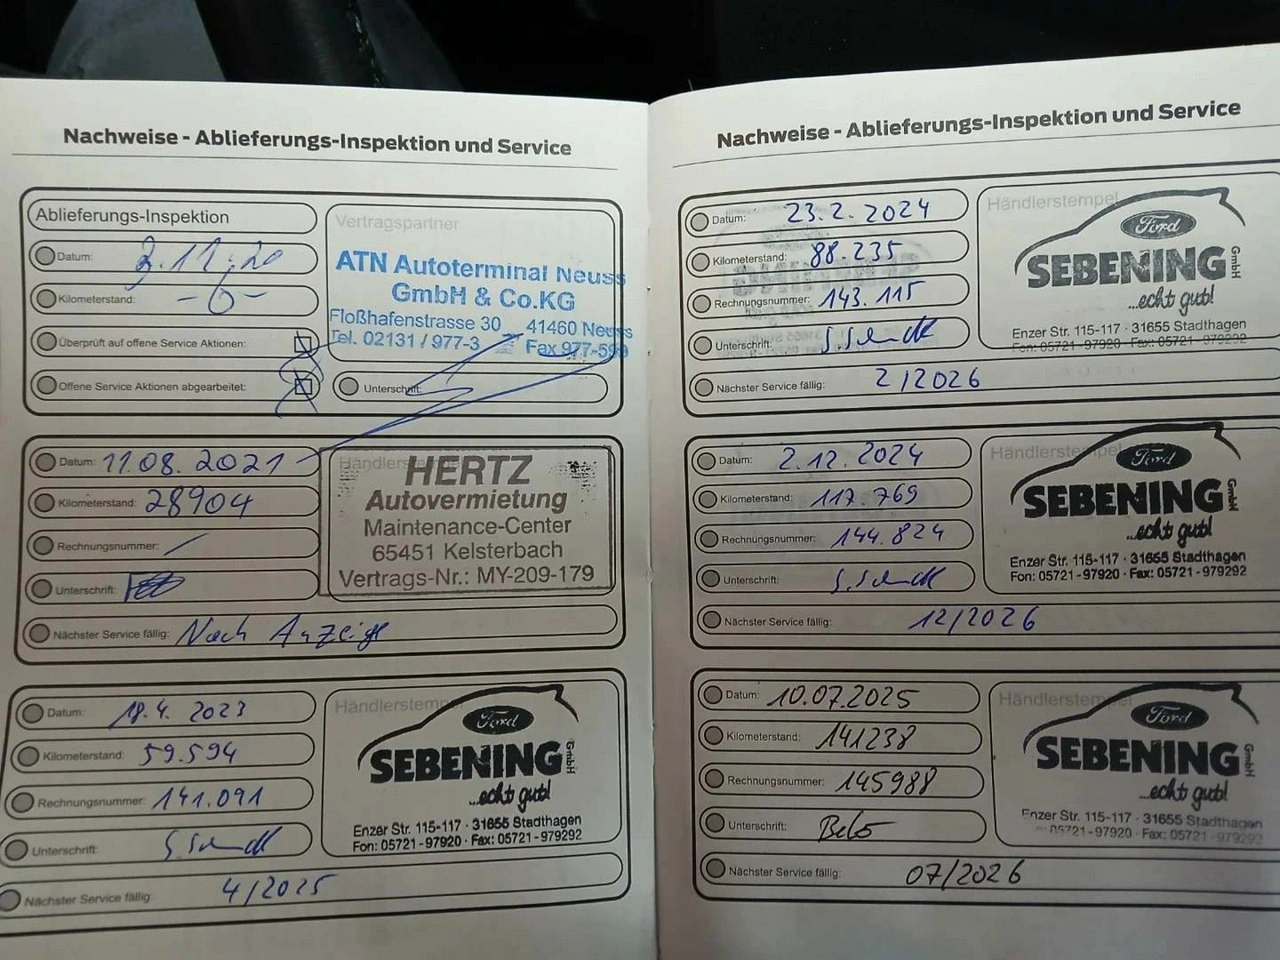 Nachweise - Ablieferungs-Inspektion und Service
Ablieferungs-Inspektion
Datum: 3.11.20
Kilometerstand: -0-
Überprüft auf offene Service Aktionen:
Offene Service Aktionen abgearbeitet:
Vertragspartner
ATN Autoterminal Neuss
GmbH & Co.KG
Floßhafenstrasse 30 41460 Neuss
Tel. 02131 / 977-3 Fax 977-599
Unterschrift:
Datum: 11.08.2021
Kilometerstand: 28904
Rechnungsnummer: /
Unterschrift:
Nächster Service fällig: Nach Anzeige
HERTZ
Autovermietung
Maintenance-Center
65451 Kelsterbach
Vertrags-Nr.: MY-209-179
Datum: 18.4. 2023
Kilometerstand: 59.594
Rechnungsnummer: 141.091
Unterschrift:
Nächster Service fällig: 4/2025
Händlerstempel
Ford
SEBENING GmbH
...echt gut!
Enzer Str. 115-117 · 31655 Stadthagen
Fon: 05721-97920 · Fax: 05721-979292
Nachweise - Ablieferungs-Inspektion und Service
Datum: 23.2.2024
Kilometerstand: 88.235
Rechnungsnummer: 143.115
Unterschrift:
Nächster Service fällig: 2/2026
Händlerstempel
Ford
SEBENING GmbH
...echt gut!
Enzer Str. 115-117 · 31655 Stadthagen
Fon: 05721-97920 · Fax: 05721-979292
Datum: 2.12.2024
Kilometerstand: 117.769
Rechnungsnummer: 144.824
Unterschrift:
Nächster Service fällig: 12/2026
Händlerstempel
Ford
SEBENING GmbH
...echt gut!
Enzer Str. 115-117 · 31655 Stadthagen
Fon: 05721-97920 · Fax: 05721-979292
Datum: 10.07.2025
Kilometerstand: 141238
Rechnungsnummer: 145988
Unterschrift:
Nächster Service fällig: 07/2026
Händlerstempel
Ford
SEBENING GmbH
...echt gut!
Enzer Str. 115-117 · 31655 Stadthagen
05721-97920 · Fax: 05721-979292